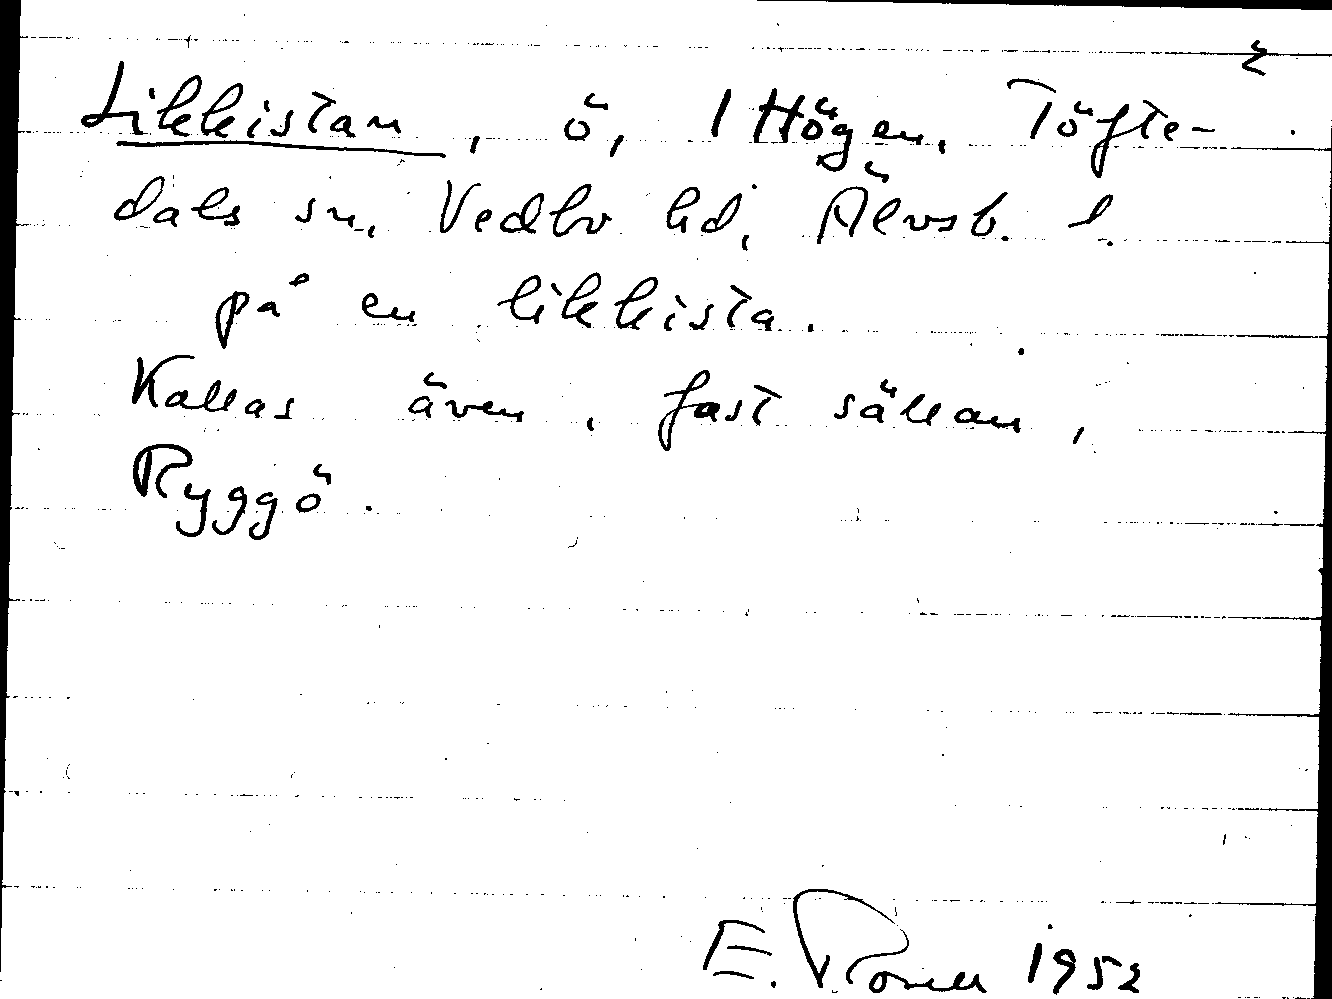 2
Likkistan, ö, 1 Högen, Töfte-
dals sn, Vedbo hd, Älvsb. l.
på en likkista.
Kallas även, fast sällan,
Ryggö.
E. Rosell 1952